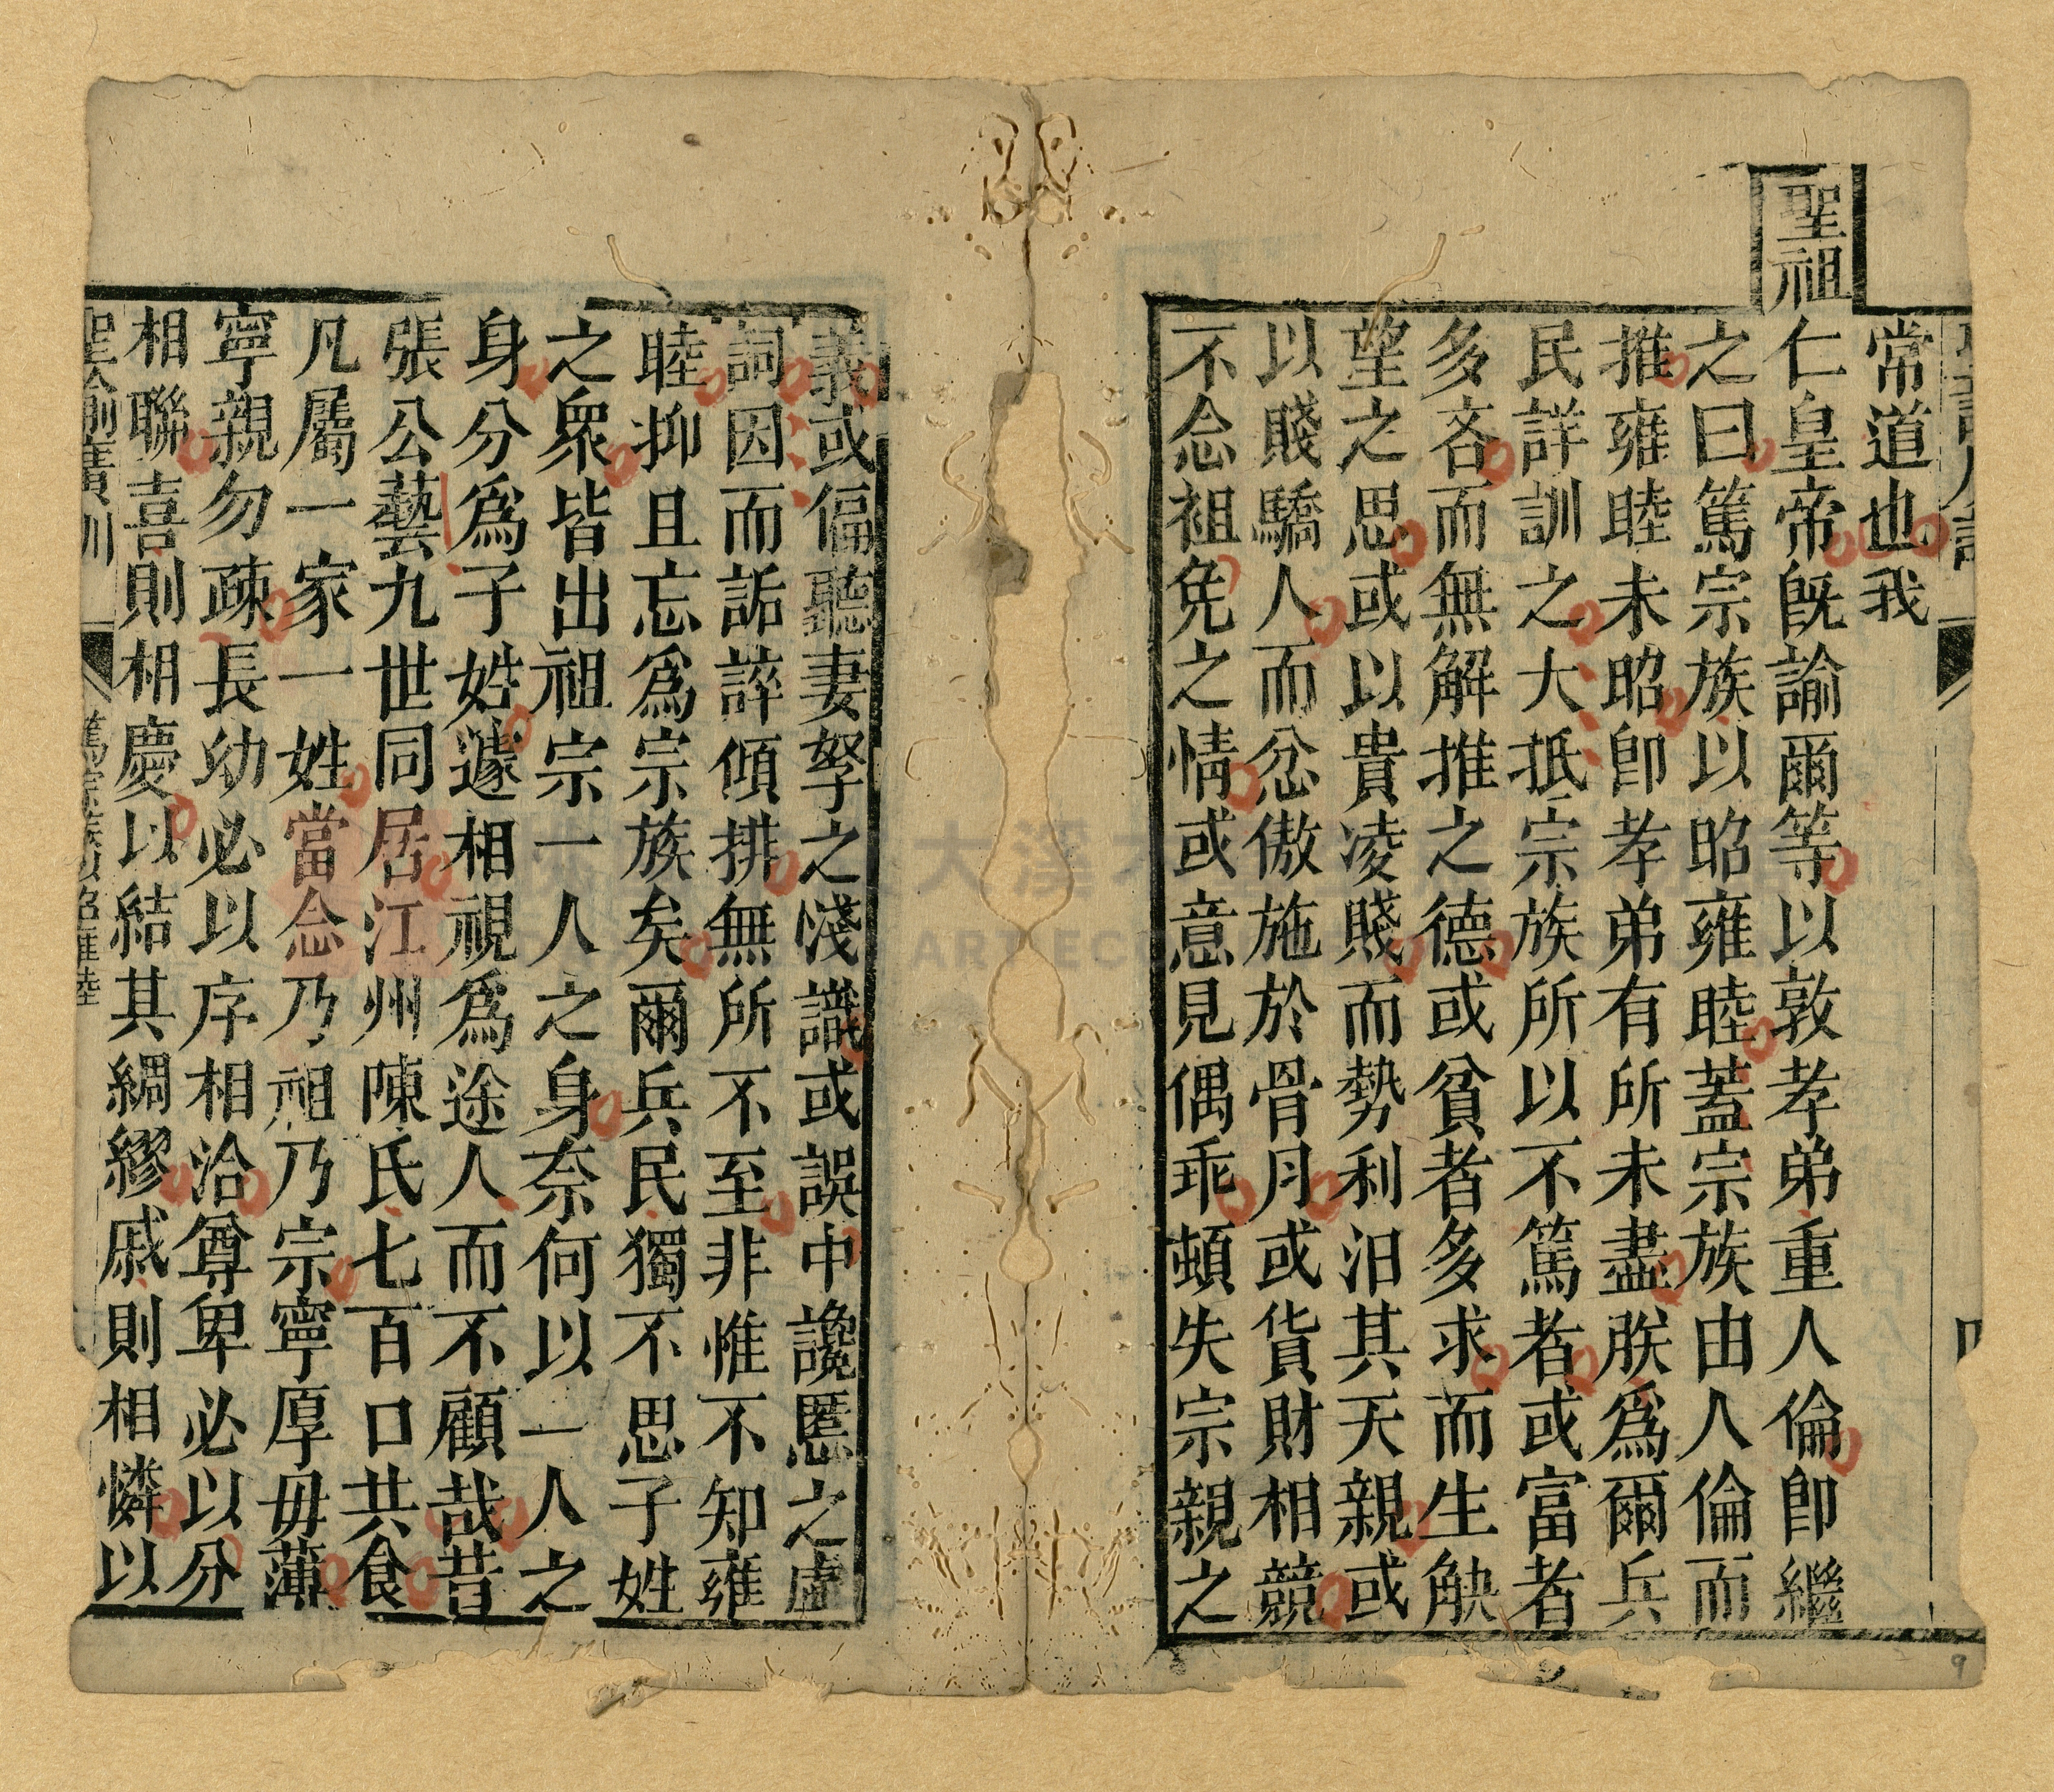 常道也我
聖祖
仁皇帝既諭爾等以敦孝弟重人倫卽繼
之曰篤宗族以昭雍睦蓋宗族由人倫而
推雍睦未昭卽孝弟有所未盡朕爲爾兵
民詳訓之大抵宗族所以不篤者或富者
多吝而無解推之德或貧者多求而生觖
望之思或以貴凌賤而勢利汨其天親或
以賤驕人而忿傲施於骨月或貨財相競
不念袒免之情或意見偶乖頓失宗親之
義或偏聽妻孥之淺識或誤中讒慝之虛
詞因而詬誶傾排無所不至非惟不知雍
睦抑且忘爲宗族矣爾兵民獨不思子姓
之眾皆出祖宗一人之身奈何以一人之
身分爲子姓遽相視爲途人而不顧哉昔
張公藝九世同居江州陳氏七百口共食
凡屬一家一姓當念乃祖乃宗寧厚毋薄
寧親勿疎長幼必以序相洽尊卑必以分
相聯喜則相慶以結其綢繆戚則相憐以
聖諭廣訓 篤宗族以昭雍睦